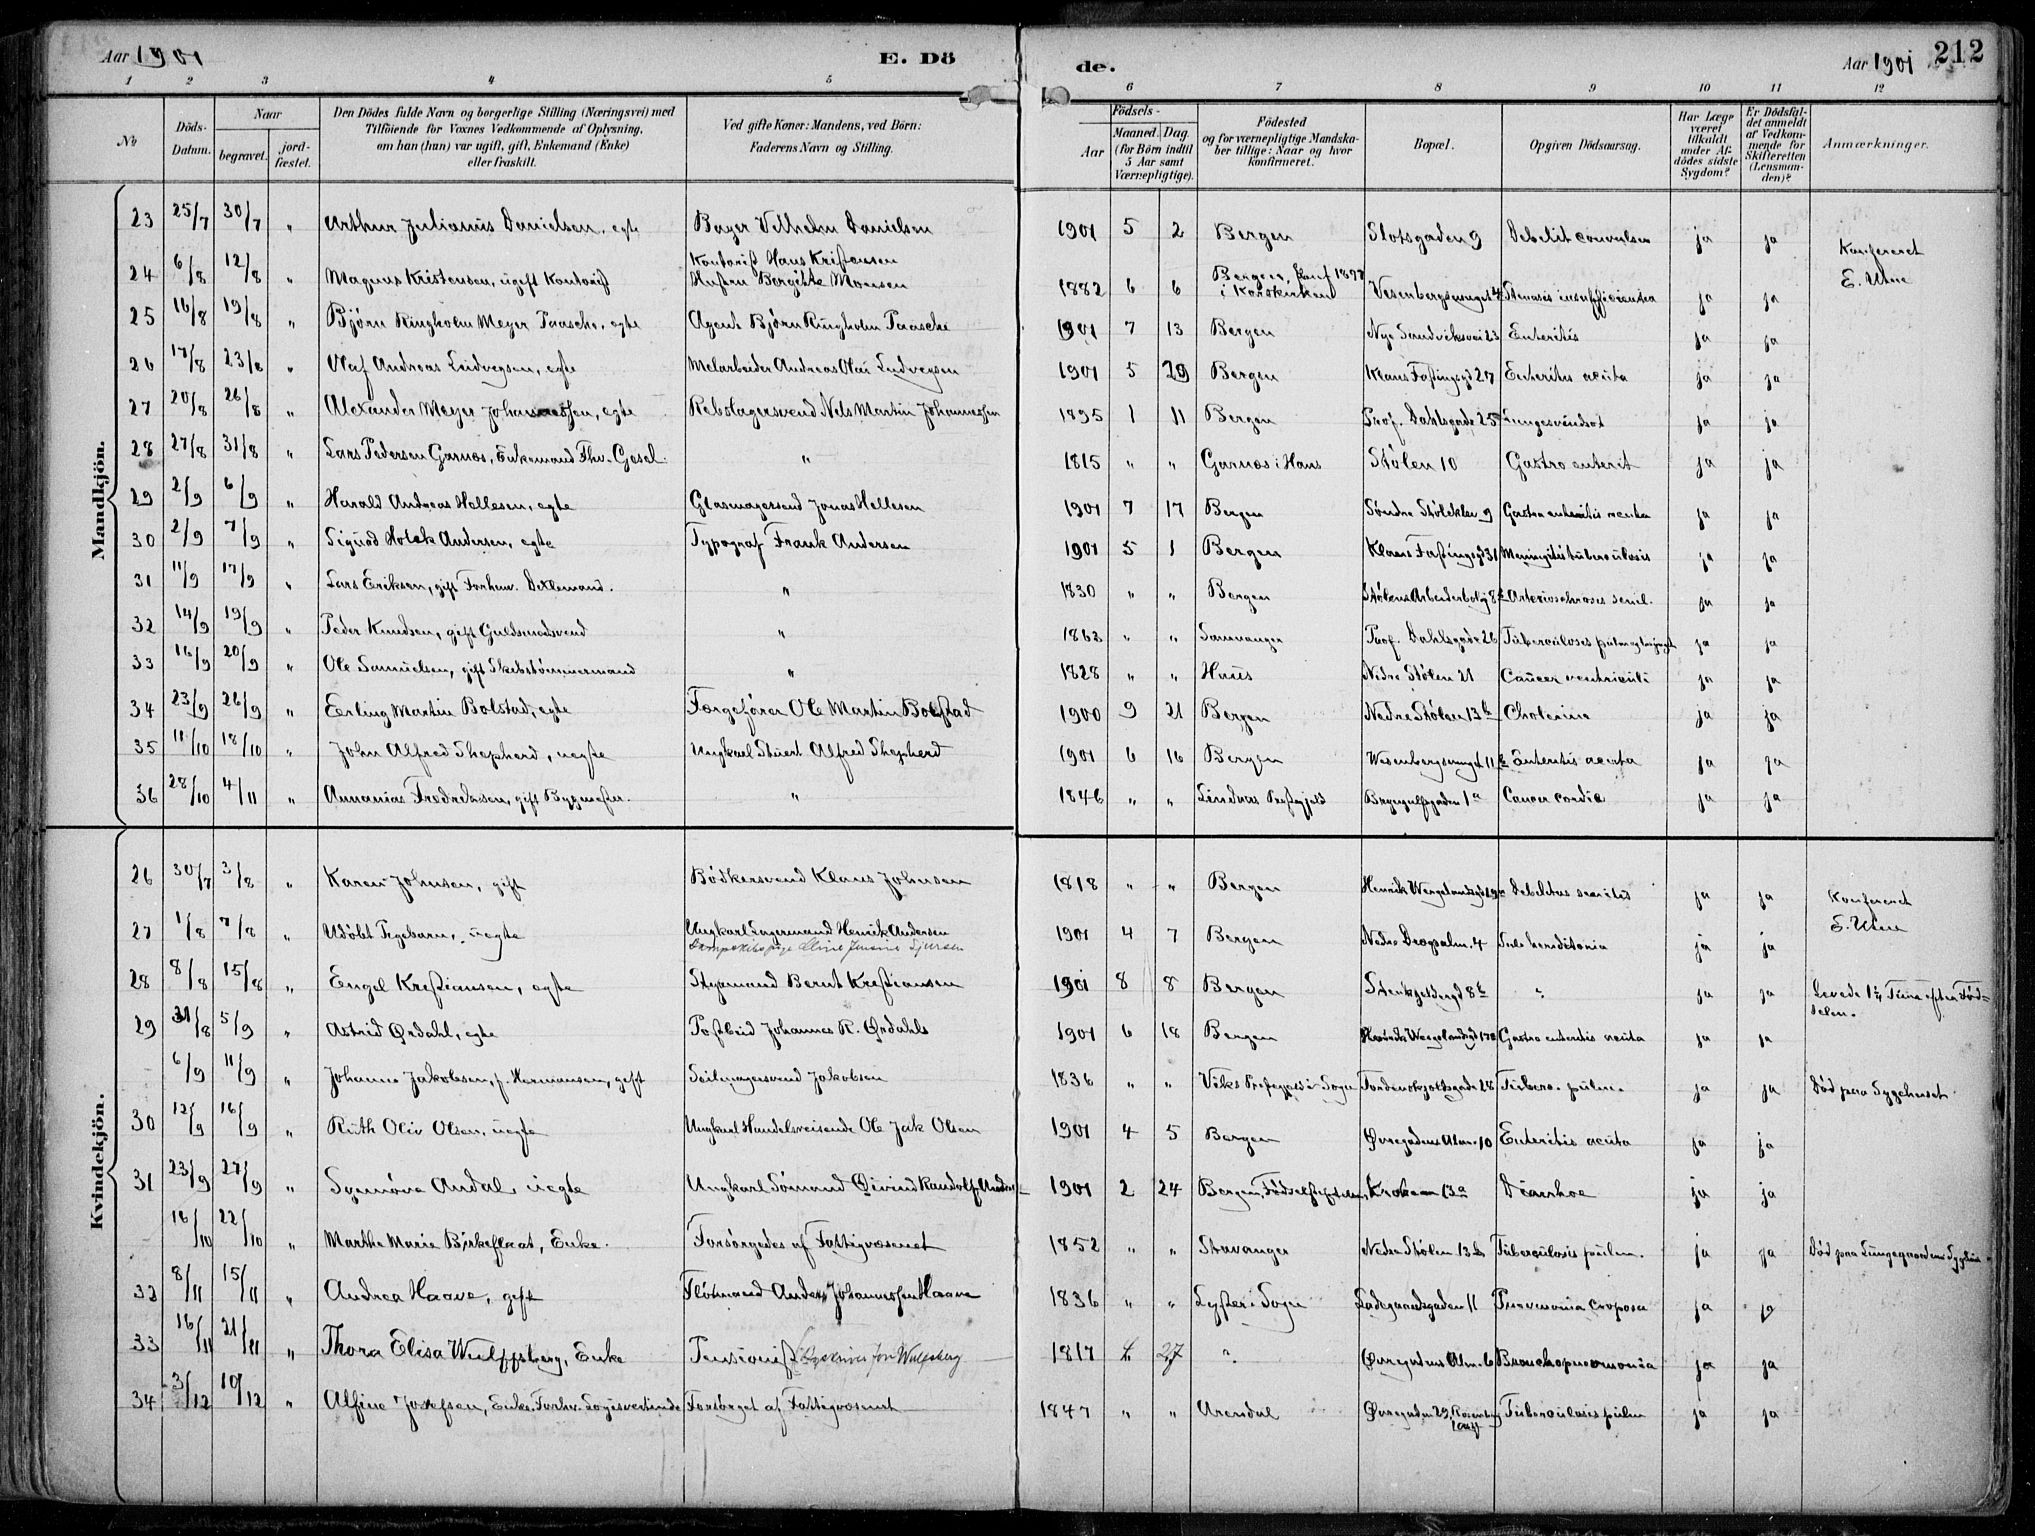 Aar 1901
E. Dö
de.
Aar 1901
212
1 2 3 4 5 6 7 8 9 10 11 12
No
Döds-Datum.
Naar
begravet.
jord-fæstet.
Den Dödes fulde Navn og borgerlige Stilling (Næringsvei) med
Tilföiende for Voxnes Vedkommende af Oplysning,
om han (hun) var ugift, gift, Enkemand (Enke)
eller fraskilt.
Ved gifte Koner: Mandens, ved Börn:
Faderens Navn og Stilling.
Födsels-
Aar
Maaned. Dag.
(for Börn indtil
5 Aar samt
Værnepligtige).
Födested
og for værnepligtige Mandska-
ber tillige: Naar og hvor
konfirmeret.
Bopæl.
Opgiven Dödsaarsag.
Har Læge
været
tilkaldt
under Af-
dödes sidste
Sygdom?
Er Dödsfal-
det anmeldt
af Vedkom-
mende for
Skifteretten
(Lensman-
den)?
Anmærkninger.
Mandkjön.
23 25/7 30/7 " Arthur Julianus Danielsen, egte Bager Vilhelm Danielsen 1901 5 2 Bergen Slotsgaden 9 Debilit convulsen ja ja Konfereret
24 6/8 12/8 " Magnus Kristensen, ugift Kontorist Kontorist Hans Kristensen Hustru Bergitte Monsen 1882 6 6 Bergen, Konf 1897 i Korskirken Stenosis insufficientia ja ja E. Utne
25 16/8 19/8 " Bjørn Ringholm Meyer Paasche, egte Agent Bjørn Ringholm Paasche 1901 7 13 Bergen Nye Sandviksvei 23 Enteritis ja ja
26 17/8 23/8 " Olaf Andreas Ludvigsen, egte Melarbeider Andreas Olai Ludvigsen 1901 5 29 Bergen Klaus Fastingsgd 27 Enteritis acuta ja ja
27 20/8 26/8 " Alexander Meyer Johannessen, egte Rebslagersvend Nels Martin Johannessen 1895 1 11 Bergen Prof. Dahlsgade 25 Lungesvindsot ja ja
28 27/8 31/8 " Lars Pedersen Garnæs, Enkemand Fhv. Gesel. " 1815 " " Garnæs i Haus Stølen 10 Gastro enterit ja ja
29 2/9 6/9 " Harald Andreas Hellesen, egte Glasmagersvend Jonas Hellesen 1901 7 17 Bergen Søndre Stølekler 9 Gastro enteritis acuta ja ja
30 2/9 7/9 " Sigurd Holck Andersen, egte Typograf Frank Andersen 1901 5 1 Bergen Klaus Fastingsgd 31 Meningitis tuberculosis ja ja
31 11/9 17/9 " Lars Eriksen, gift Forhenv. " 1830 " " Bergen Arteriosclerosis senil. ja ja
32 14/9 19/9 " Peder Knudsen, gift Guldsmedsvend " 1863 " " Samnanger Prof. Dahlsgade 26 ja ja
33 16/9 20/9 " Ole Samuelsen, gift Skibstømmermand " 1828 " " Haus Nedre Stølen 21 Cancer ventriculi ja ja
34 23/9 26/9 " Erling Martin Bolstad, egte Færgefører Ole Martin Bolstad 1900 9 21 Bergen Nedre Stølen 13 b Cholerine ja ja
35 11/10 18/10 " John Alfred Shepherd, uegte Ungkarl Stuert Alfred Shepherd 1901 6 16 Bergen Enteritis acuta ja ja
36 28/10 4/11 " Annanias Fredriksen, gift Bygmester. " 1846 " " Lindaas Prestegjeld 1 a Cancer cardiæ ja ja
Kvindekjön.
26 30/7 3/8 " Karen Johnsen, gift Bødkersvend Klaus Johnsen 1818 " " Bergen Debilitas senilis ja ja Konfereret
27 1/8 7/8 " uegte Ungkarl Lagermand Henrik Andersen 1901 4 7 Bergen Nedre Dregsalm. 4 ja ja E. Utne
28 8/8 15/8 " Engel Kristiansen, egte Styrmand Bernt Kristiansen 1901 8 8 Bergen 8 b " ja ja Levede 1¼ Time efter Fød-
selen.
29 31/8 5/9 " Astrid Ørdahl, egte Postbud Johannes R. Ørdahls 1901 6 18 Bergen Gastro enteritis acuta ja ja
6/9 11/9 " Johanne Jakobsen, f. Hermansen, gift Seilmagersvend Jakobsen 1836 " " Viks Prestegjeld i Sogn Tordenskjoldsgade 28 Tuberc. pulm. ja ja Død paa Sygehuset
30 12/9 16/9 " Ruth Oliv Olsen, uegte Ungkarl Handelsreisende Ole Jak Olsen 1901 4 5 Bergen Øvregadens Alm. 10 Enteritis acuta ja ja
31 23/9 27/9 " Synnøve Andal, uegte Ungkarl Sømand Øivind Randolf 1901 2 24 Bergen, Fødselsstiftelsen, Kroken 13 a Diarrhoe ja ja
16/10 22/10 " Marthe Marie Birkeflaat, Enke. Forsørgedes af Fattigvæsenet 1852 " " Stavanger Nedre Stølen 13 b Tuberculosis pulm. ja ja
32 8/11 15/11 " Andrea Haave, gift Flötmand Anders Johannessen Haave 1836 " " Lyster i Sogn Ladegaardsgaden 11 Pneumonia croposa ja ja
33 16/11 21/11 " Thora Elisa Wulfsberg, Enke Pensionist 1817 4 27 " Øvregatens Alm. 6 Bronchopneumonia ja ja
34 3/12 10/12 " Alfine Josefsen, Enke, Forhv. Logisvertinde Forsørget af Fattigvæsenet 1847 " " Arendal Øvregaten 29 Tuberculosis pulm ja ja